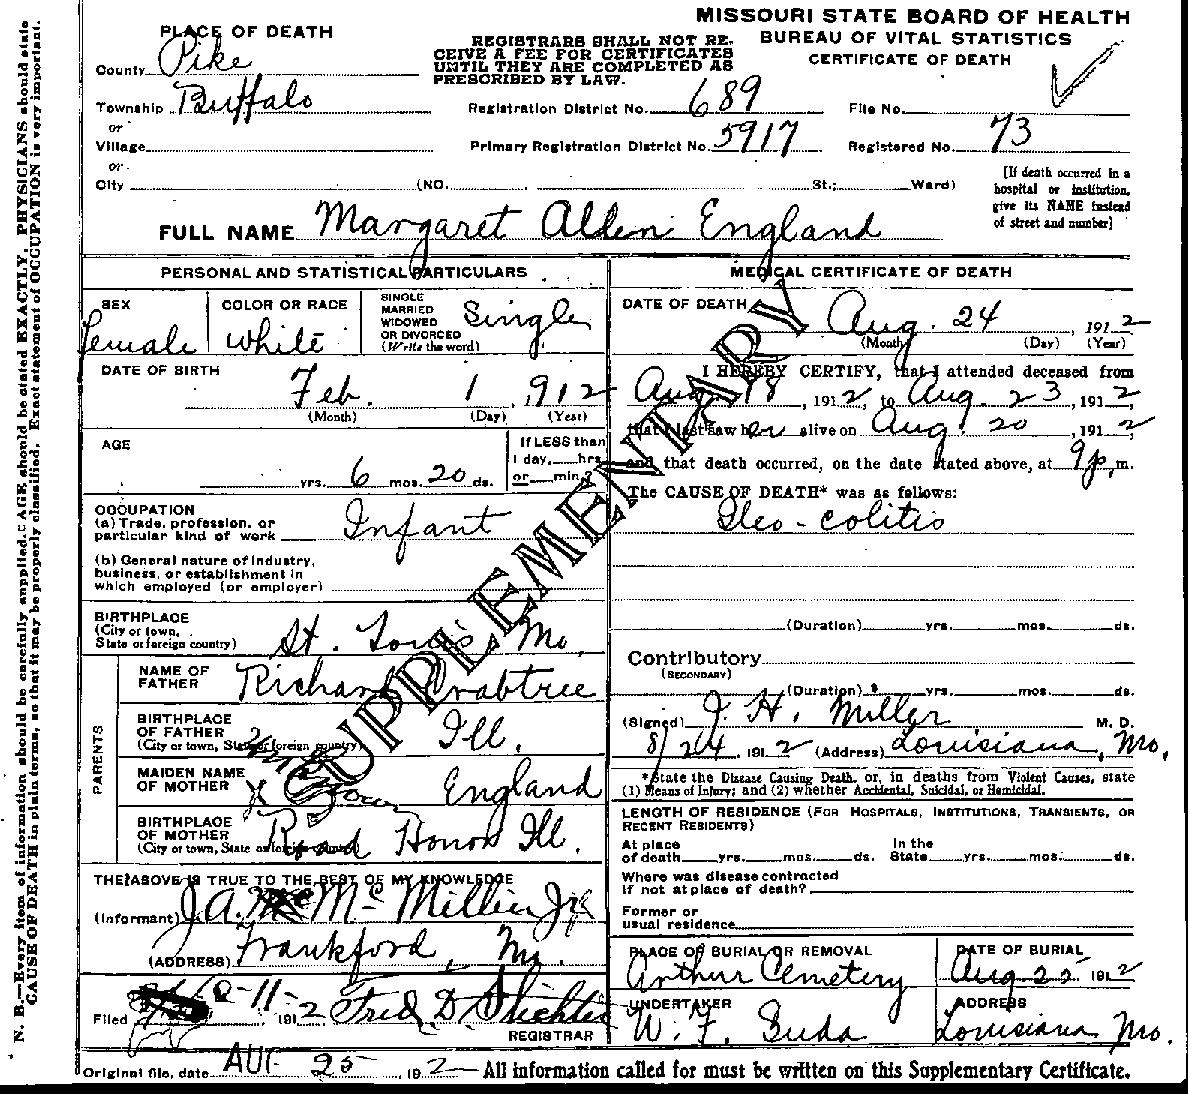 MISSOURI STATE BOARD OF HEALTH
BUREAU OF VITAL STATISTICS
CERTIFICATE OF DEATH
REGISTRARS SHALL NOT RE-
CEIVE A FEE FOR CERTIFICATES
UNTIL THEY ARE COMPLETED AS
PRESCRIBED BY LAW.
PLACE OF DEATH
County Pike
Township Buffalo
or
Village
or
City (NO. St.; Ward)
Registration District No. 689
Primary Registration District No. 5917
File No.
Registered No. 73
[If death occurred in a
hospital or institution,
give its NAME instead
of street and number]
FULL NAME Margaret Alden England
PERSONAL AND STATISTICAL PARTICULARS
SEX
Female
COLOR OR RACE
White
SINGLE
MARRIED
WIDOWED
OR DIVORCED
(Write the word)
Single
DATE OF BIRTH
Feb. 1, 912
(Month) (Day) (Year)
AGE
yrs. 6 mos. 20 ds.
If LESS than
1 day, hrs.
or min.?
OCCUPATION
(a) Trade, profession, or
particular kind of work Infant
(b) General nature of industry,
business, or establishment in
which employed (or employer)
BIRTHPLACE
(City or town,
State or foreign country) St. Louis, Mo.
PARENTS
NAME OF
FATHER Richard Crabtree
BIRTHPLACE
OF FATHER
(City or town, State or foreign country) Ill.
MAIDEN NAME
OF MOTHER England
BIRTHPLACE
OF MOTHER
(City or town, State or foreign country) Honor Ill.
THE ABOVE IS TRUE TO THE BEST OF MY KNOWLEDGE
(Informant) J. A. Mc Millin Jr
(ADDRESS) Frankford, Mo.
Filed 10-11- 1912 Fred D.
REGISTRAR
Original file, date AUG 25 1912
MEDICAL CERTIFICATE OF DEATH
DATE OF DEATH
Aug. 24, 1912
(Month) (Day) (Year)
I HEREBY CERTIFY, that I attended deceased from
Aug 18, 1912, to Aug. 23, 1912,
that I last saw her alive on Aug. 20, 1912,
and that death occurred, on the date stated above, at 9 p.m.
The CAUSE OF DEATH* was as follows:
Ileo-colitis
(Duration) yrs. mos. ds.
Contributory
(SECONDARY)
(Duration) yrs. mos. ds.
(Signed) J. H. Miller M. D.
8/24, 1912 (Address) Louisiana, Mo.
*State the Disease Causing Death, or, in deaths from Violent Causes, state
(1) Means of Injury; and (2) whether Accidental, Suicidal, or Homicidal.
LENGTH OF RESIDENCE (FOR HOSPITALS, INSTITUTIONS, TRANSIENTS, OR
RECENT RESIDENTS)
At place
of death yrs. mos. ds.
In the
State yrs. mos. ds.
Where was disease contracted
if not at place of death?
Former or
usual residence
PLACE OF BURIAL OR REMOVAL
Arthur Cemetery
DATE OF BURIAL
Aug 25 1912
UNDERTAKER
W. F. Suda
ADDRESS
Louisiana Mo.
All information called for must be written on this Supplementary Certificate.
SUPPLEMENTARY
N. B.—Every item of information should be carefully supplied. AGE should be stated EXACTLY. PHYSICIANS should state
CAUSE OF DEATH in plain terms, so that it may be properly classified. Exact statement of OCCUPATION is very important.